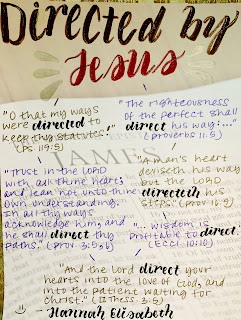 Directed by
Jesus
"O that my ways
were directed to
keep thy statutes."
(Ps. 119:5)
"The righteousness
of the perfect shall
direct his way:..."
(Proverbs 11:5)
JAME
"Trust in the LORD
with all thine heart;
and lean not unto thine
own understanding.
In all thy ways
acknowledge him, and
he shall direct thy
paths." (Prov. 3:5,6)
"A man's heart
deviseth his way
but the LORD
directeth his
steps." (Prov 16:9)
"... wisdom is
profitable to direct."
(Eccl 10:10)
"And the Lord direct your
hearts into the love of God, and
into the patient waiting for
Christ." (II Thess. 3:5)
- Hannah Elizabeth